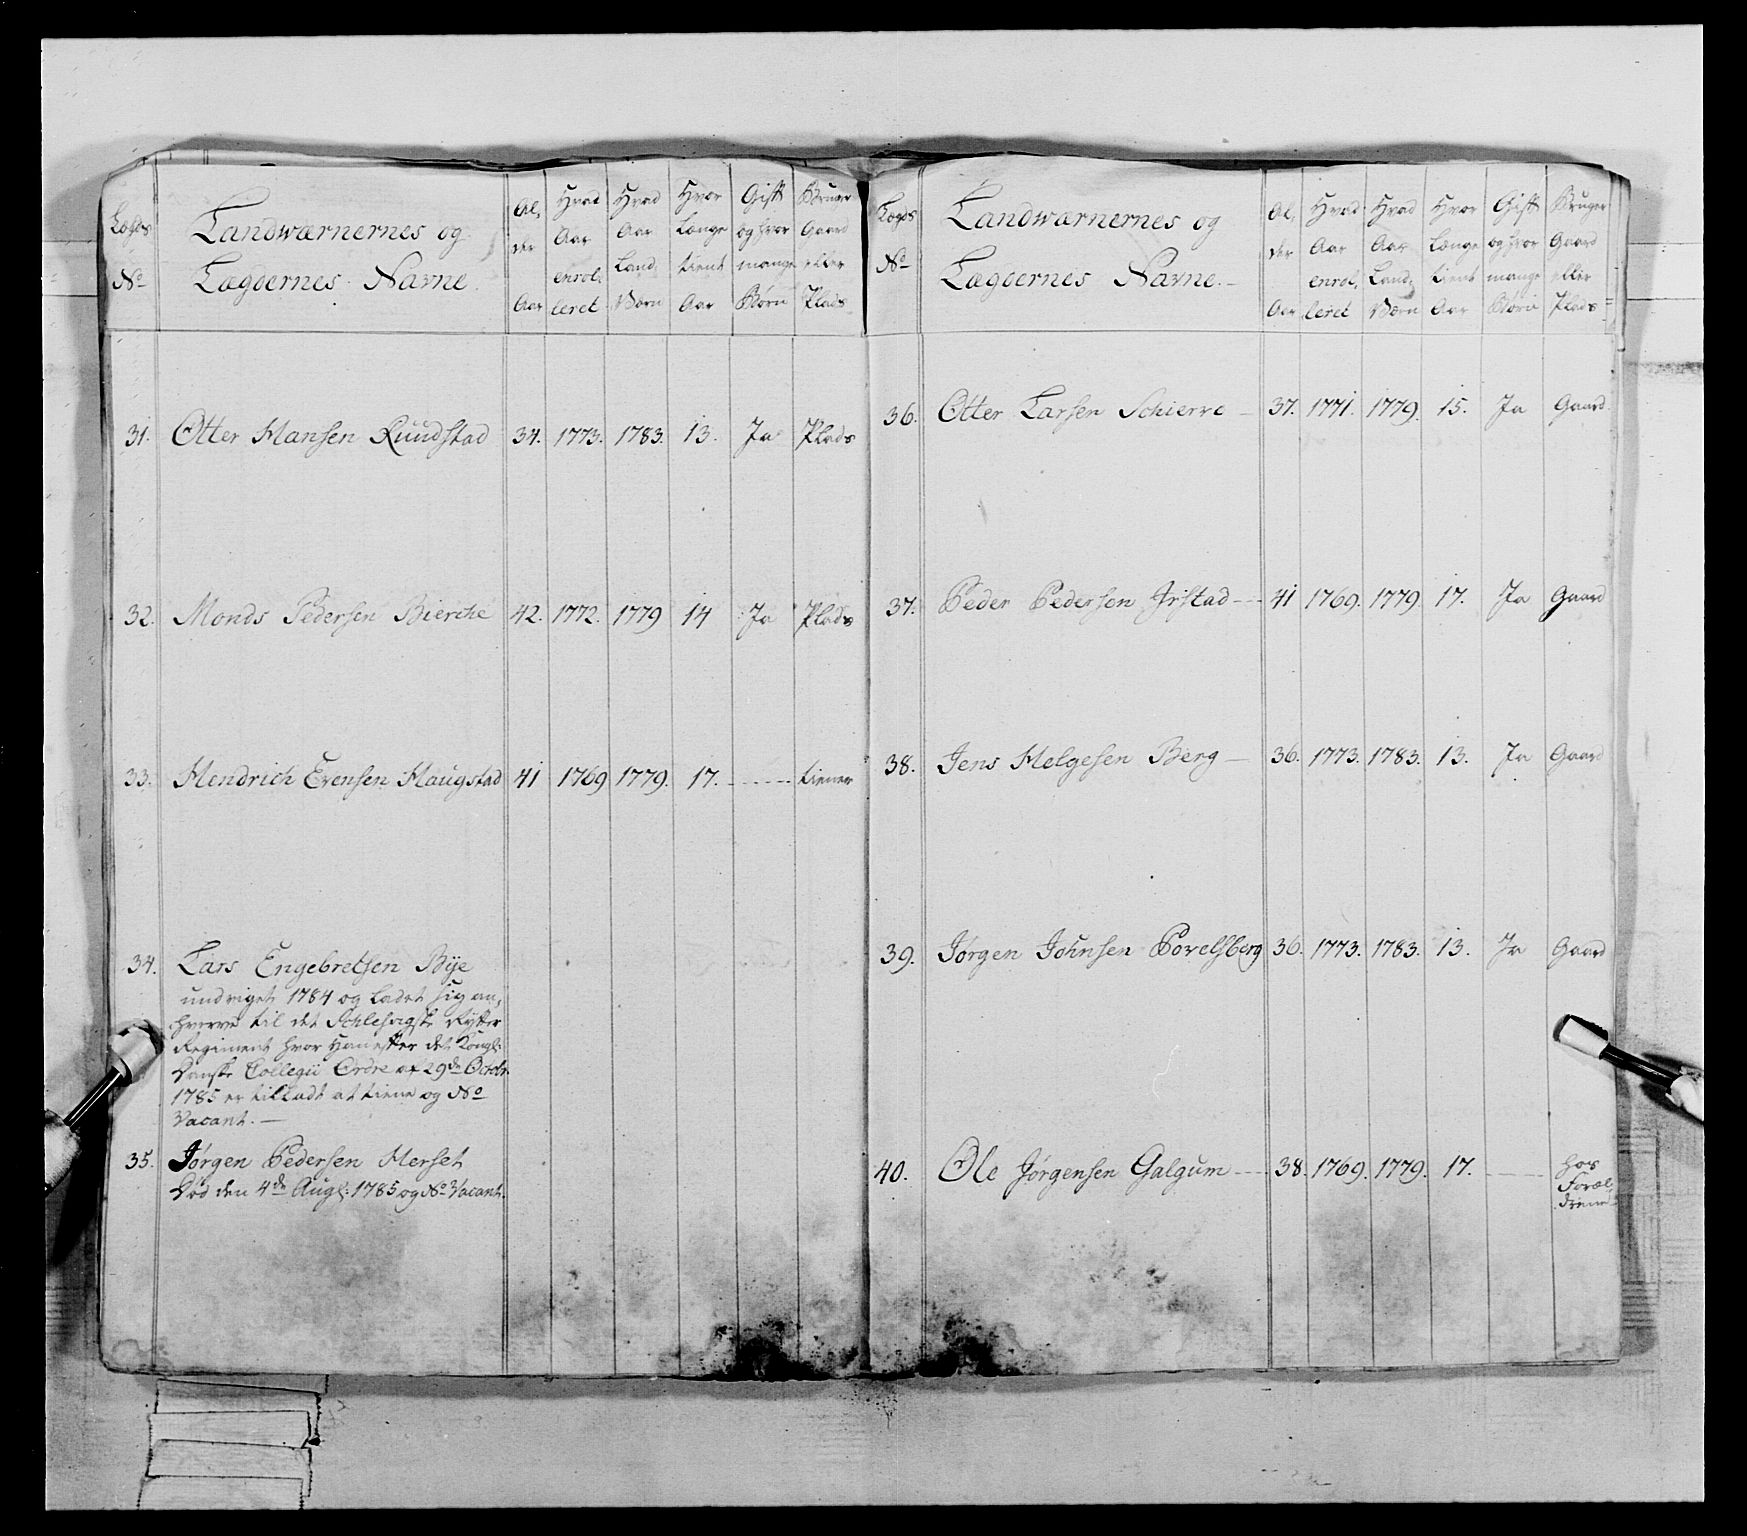 Lægds No
Landwærnernes og
Lægdernes Navne.
Al, der Aar
Hvad Aar enrol, leret
Hvad Aar Land, Værn
Hvor Længe tient Aar
Gift og hvor mange Børn
Bruger Gaard eller Plads
31. Otter Hansen Ruudstad 34. 1773. 1783. 13. Ja Plads
32. Monds Pedersen Bierche 42. 1772. 1779 14 Ja Plads
33. Hendrich Evensen Haugstad 41 1769 1779. 17. tiener
34. Lars Engebretsen Bye
undviget 1784 og ladet sig an,
hverve til det Schlesvigske Rytter
Regiment hvor Han efter det Kongl:
Danske Collegii Ordre af 29de Octobr
1785 er tilladt at tiene og No
Vacant. —
35. Jørgen Pedersen Herset
Død den 4de Aug: 1785 og No Vacant.
Lægds No
Landwærnernes og
Lægdernes Navne. –
Al, der Aar
Hvad Aar enrol, leret
Hvad Aar Land, Værn
Hvor Længe tient Aar
Gift og hvor mange Børn
Bruger Gaard eller Plads
36. Otter Larsen Schierve – 37. 1771. 1779. 15. Ja Gaard
37. Peder Pedersen Irstad – 41 1769. 1779. 17. Ja Gaard
38. Jens Helgesen Berg – 36. 1773. 1783. 13. Ja Gaard
39. Jørgen Johnsen Povelsberg 36. 1773. 1783. 13. Ja Gaard
40. Ole Jørgensen Galgum – 38. 1769. 1779. 17. hos
Foræl,
drene